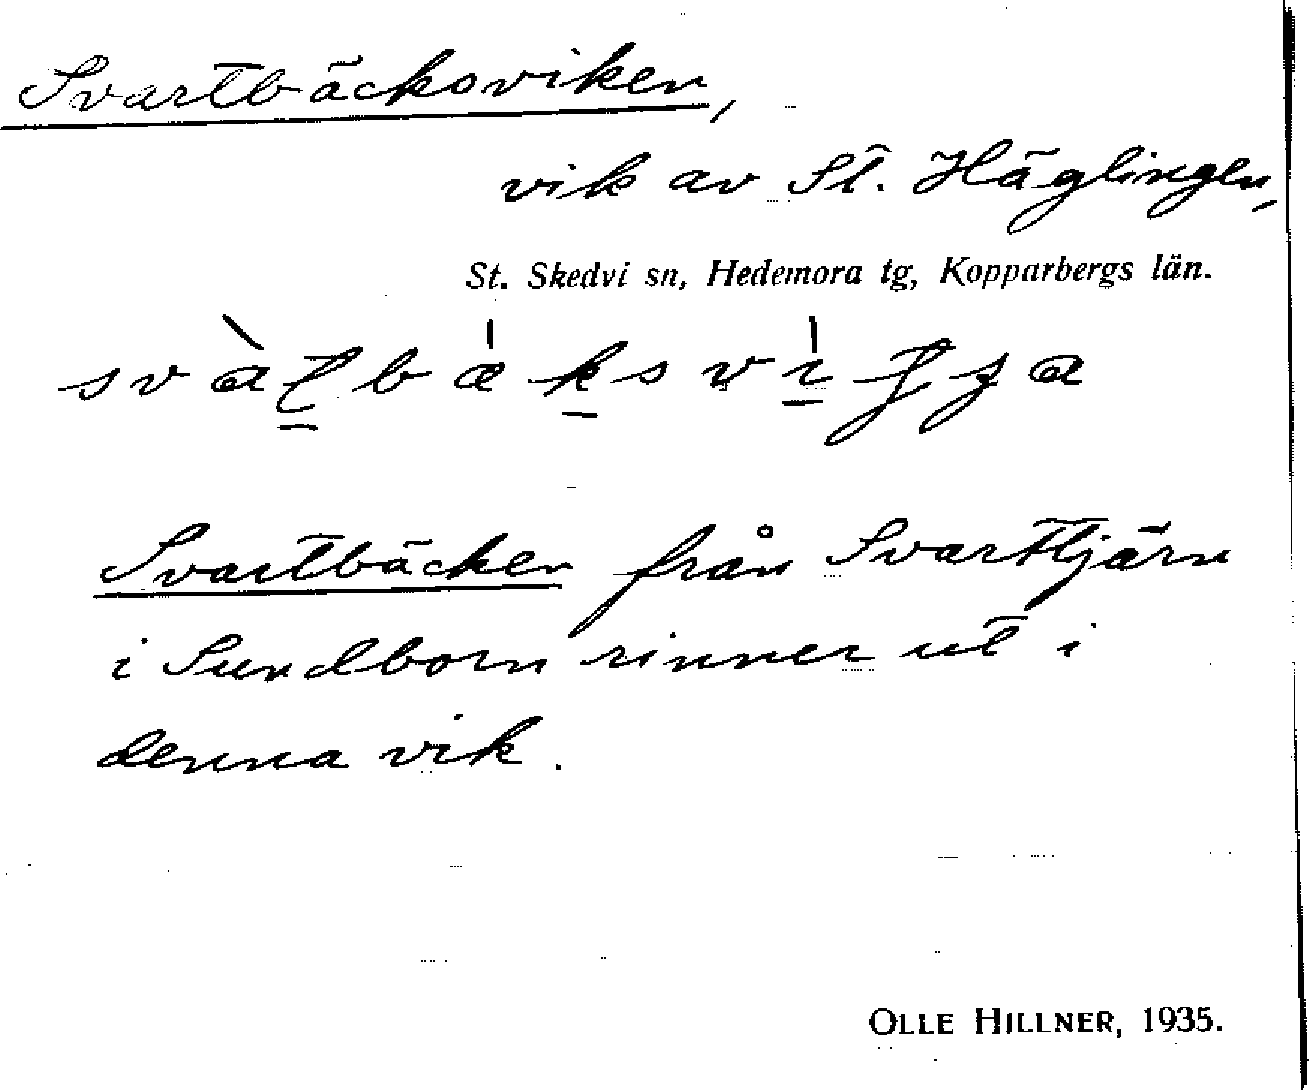 Svartbäcksviken,
vik av St. Häglingen,
St. Skedvi sn, Hedemora tg, Kopparbergs län.
Svartbäcken från Svarttjärn
i Sundborn rinner ut i
denna vik.
OLLE HILLNER, 1935.